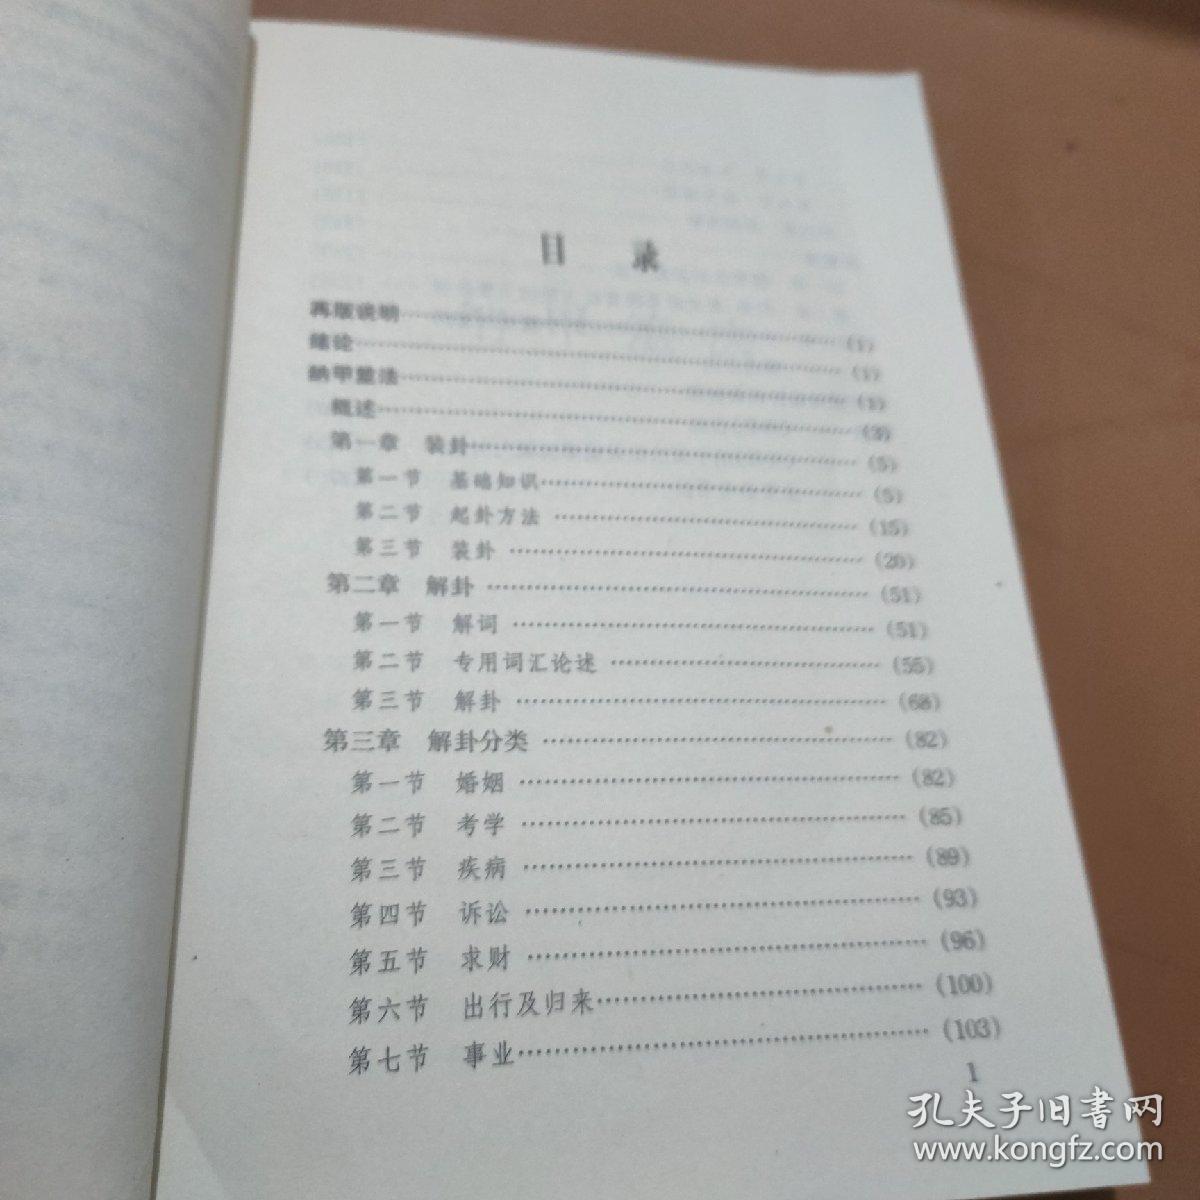 目 录
再版说明……(1)
绪论……(1)
纳甲筮法……(1)
概述……(3)
第一章 装卦……(5)
第一节 基础知识……(5)
第二节 起卦方法……(15)
第三节 装卦……(20)
第二章 解卦……(51)
第一节 解词……(51)
第二节 专用词汇论述……(55)
第三节 解卦……(68)
第三章 解卦分类……(82)
第一节 婚姻……(82)
第二节 考学……(85)
第三节 疾病……(89)
第四节 诉讼……(93)
第五节 求财……(96)
第六节 出行及归来……(100)
第七节 事业……(103)
1
孔夫子旧书网
www.kongfz.com